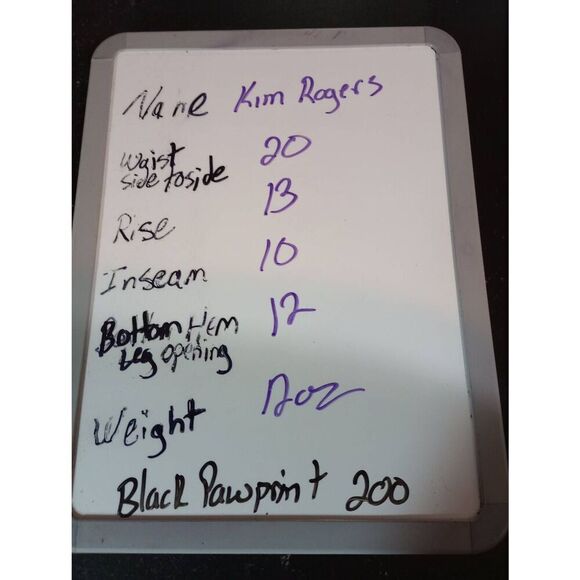 Name Kim Rogers
waist 20
side to side
Rise 13
Inseam 10
Bottom Hem 12
Leg opening
Weight 12oz
Black Pawprint 200